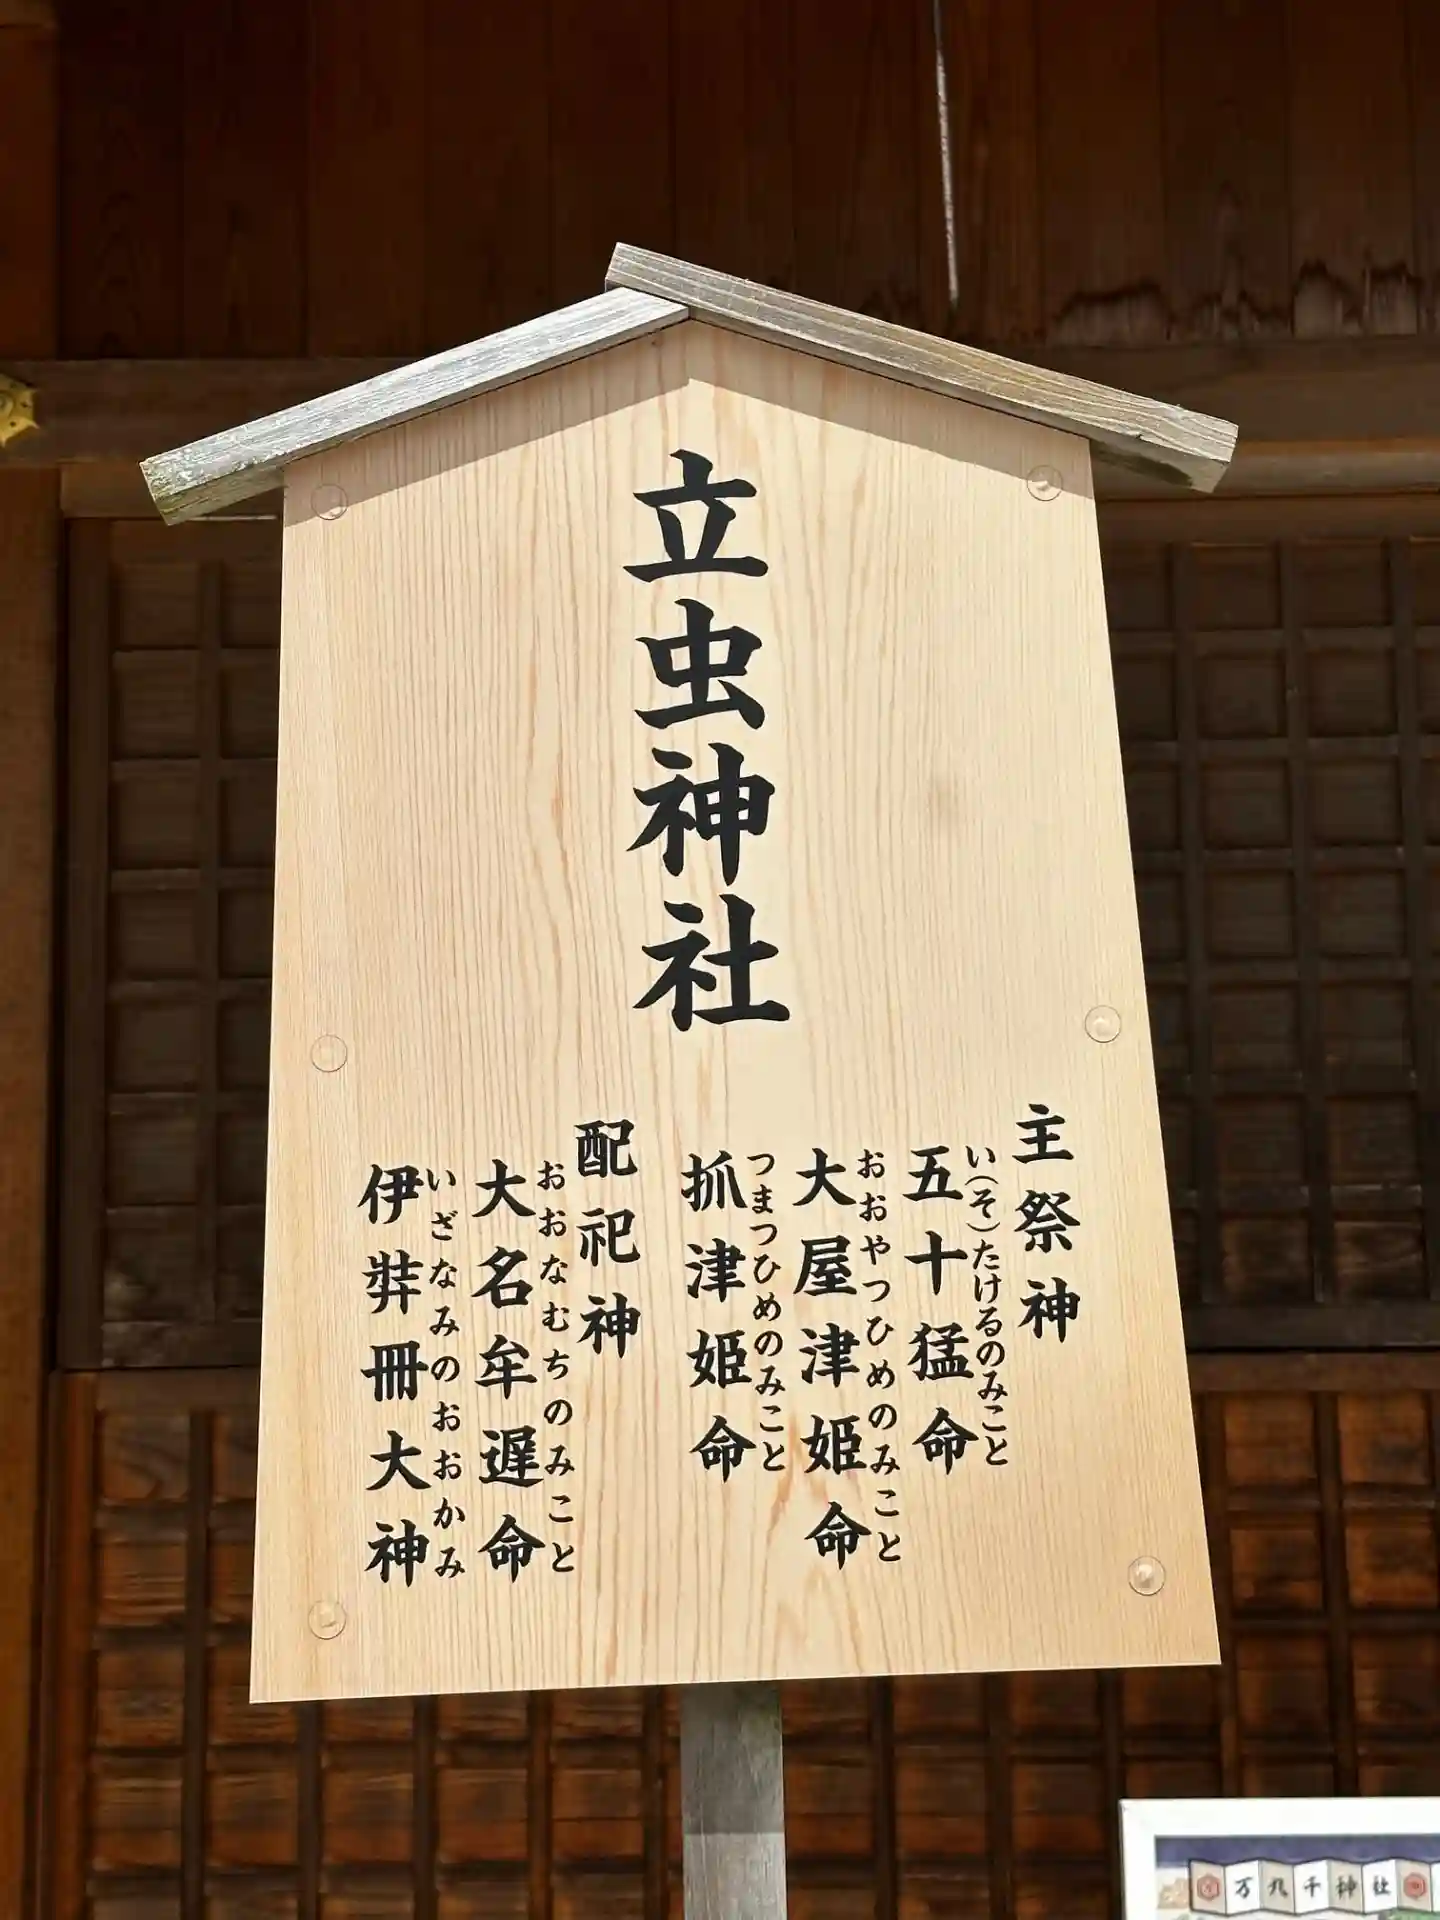 立虫神社
主祭神
い(そ)たけるのみこと
五十猛命
おおやつひめのみこと
大屋津姫命
つまつひめのみこと
抓津姫命
配祀神
おおなむちのみこと
大名牟遅命
いざなみのおおかみ
伊弉冊大神
万九千神社